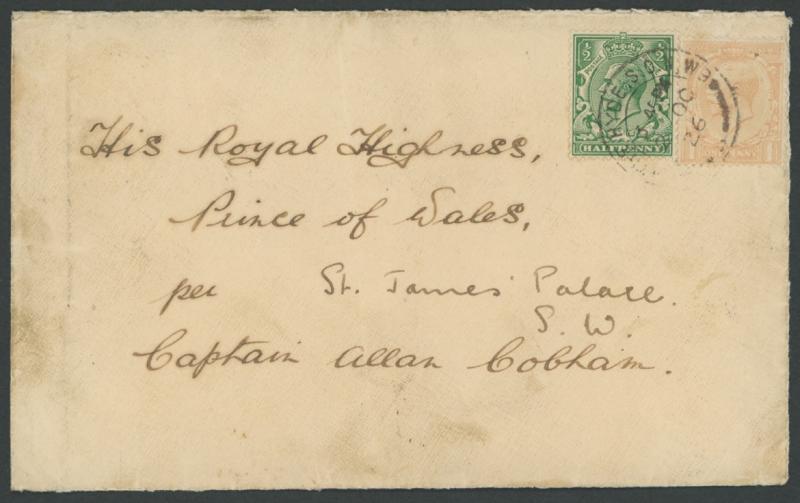 ½ ½
HALFPENNY
1 PENNY 1
OC
26
His Royal Highness,
Prince of Wales,
per St. James' Palace.
S. W.
Captain Allan Cobham.